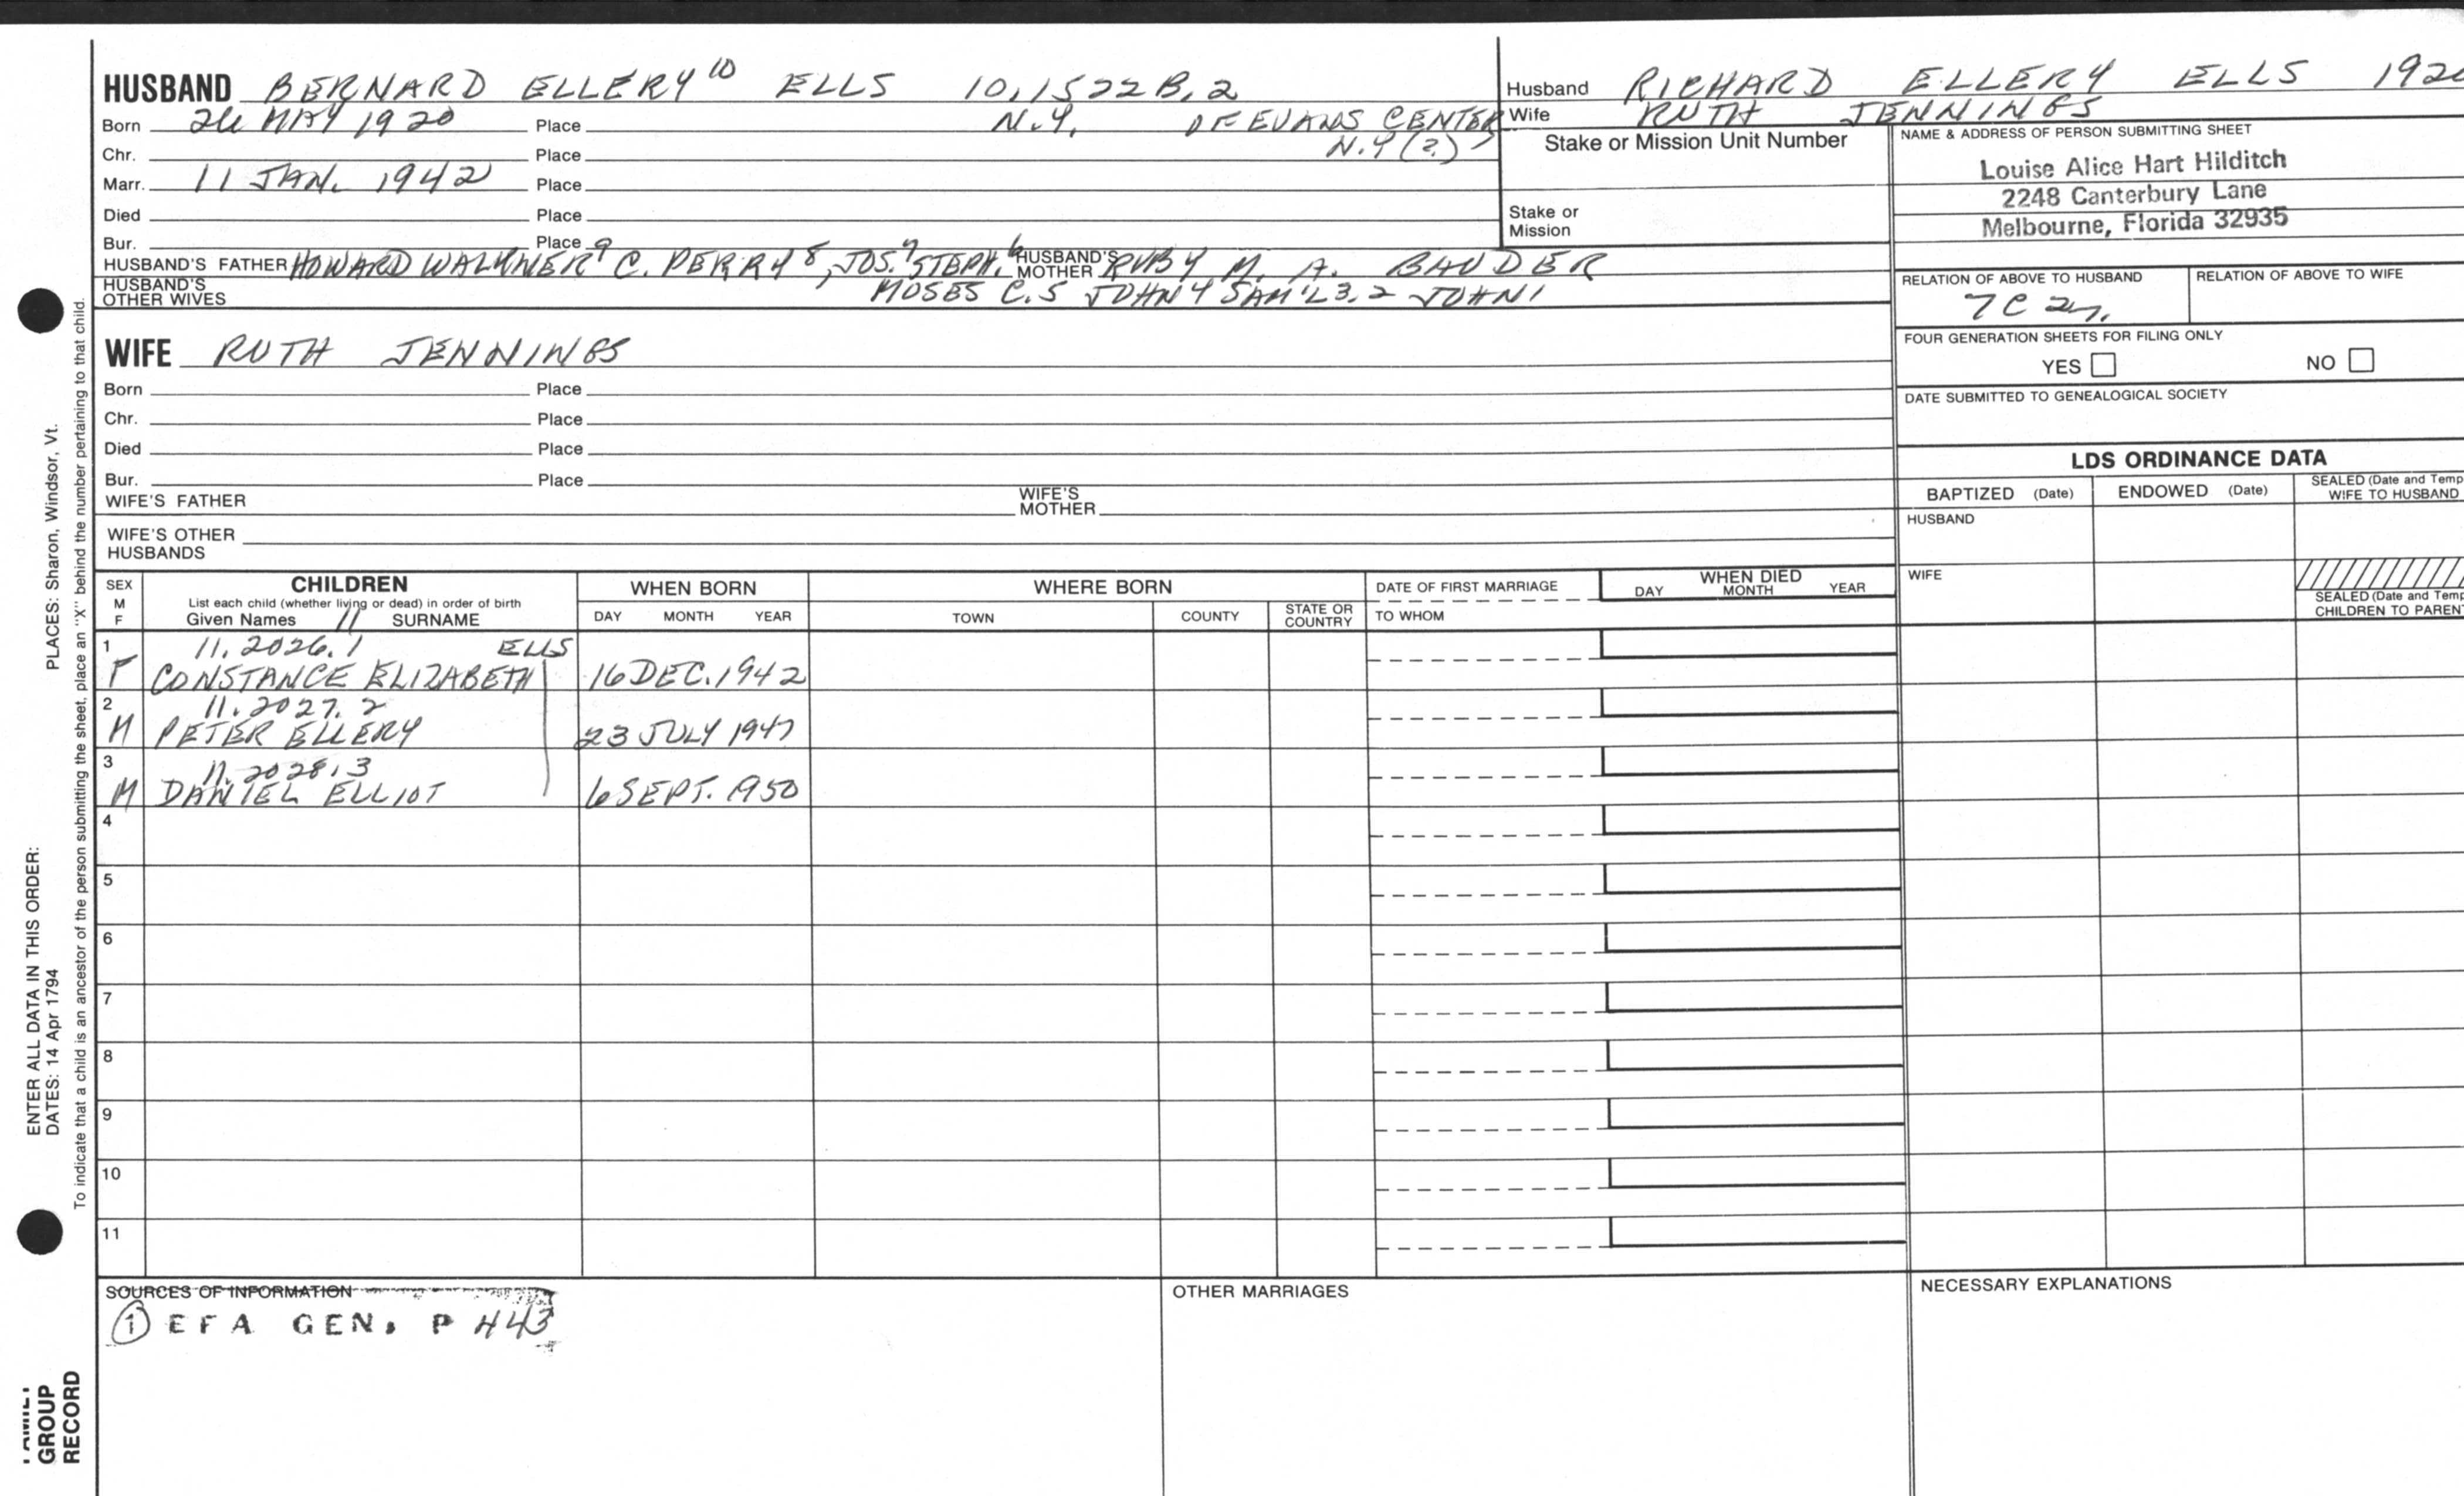 HUSBAND BERNARD ELLERY 10 ELLS 10,1522B.2
Born 26 MAY 1920 Place N.Y. OF EVANS CENTER
N.Y (?)
Chr. Place
Marr. 11 JAN. 1942 Place
Died Place
Bur. Place
HUSBAND'S FATHER HOWARD 9 C. PERRY 8, JOS. 7 STEPH. 6 HUSBAND'S MOTHER RUBY M. A. BAUDER
HUSBAND'S OTHER WIVES MOSES C. 5 JOHN 4 SAM'L 3. 2 JOHN 1
Husband RICHARD ELLERY ELLS 1920
Wife RUTH JENNINGS
Stake or Mission Unit Number
Stake or
Mission
NAME & ADDRESS OF PERSON SUBMITTING SHEET
Louise Alice Hart Hilditch
2248 Canterbury Lane
Melbourne, Florida 32935
RELATION OF ABOVE TO HUSBAND
7C
RELATION OF ABOVE TO WIFE
FOUR GENERATION SHEETS FOR FILING ONLY
YES NO
DATE SUBMITTED TO GENEALOGICAL SOCIETY
WIFE RUTH JENNINGS
Born Place
Chr. Place
Died Place
Bur. Place
WIFE'S FATHER WIFE'S MOTHER
WIFE'S OTHER
HUSBANDS
LDS ORDINANCE DATA
BAPTIZED (Date) ENDOWED (Date) SEALED (Date and Temp
WIFE TO HUSBAND
HUSBAND
WIFE
SEALED (Date and Temp
CHILDREN TO PARENT
SEX
M
F
CHILDREN
List each child (whether living or dead) in order of birth
Given Names 11 SURNAME
WHEN BORN
DAY MONTH YEAR
WHERE BORN
TOWN COUNTY STATE OR COUNTRY
DATE OF FIRST MARRIAGE
TO WHOM
WHEN DIED
DAY MONTH YEAR
1 11.2026.1 ELLS
F CONSTANCE ELIZABETH 16 DEC. 1942
2 11.2027.2
M PETER ELLERY 23 JULY 1947
3 11.2028.3
M DANIEL ELLIOT 6 SEPT. 1950
4
5
6
7
8
9
10
11
SOURCES OF INFORMATION
1 EFA GEN. P 443
OTHER MARRIAGES
NECESSARY EXPLANATIONS
PLACES: Sharon, Windsor, Vt.
To indicate that a child is an ancestor of the person submitting the sheet, place an "X" behind the number pertaining to that child.
ENTER ALL DATA IN THIS ORDER:
DATES: 14 Apr 1794
GROUP
RECORD